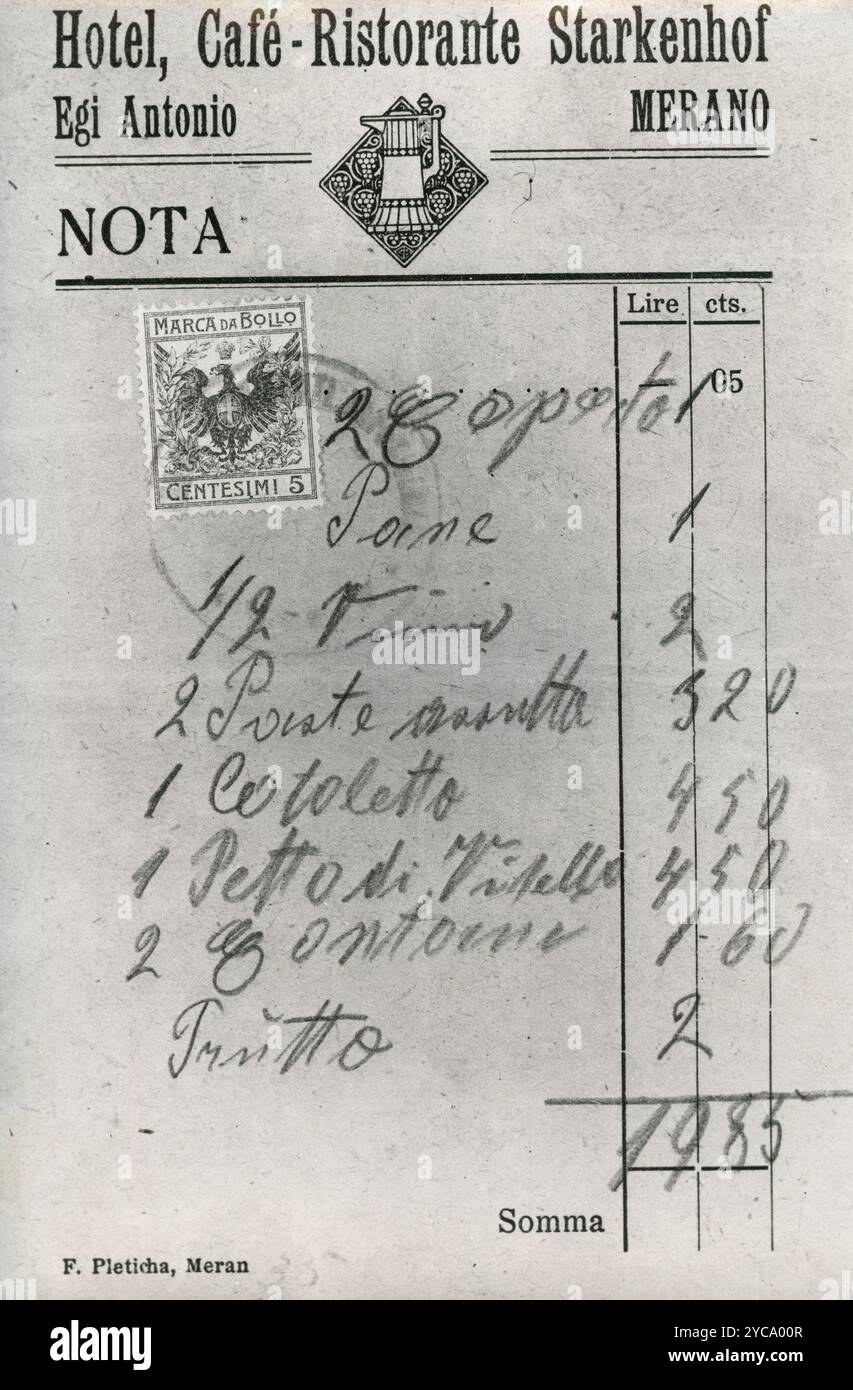 Hotel, Café-Ristorante Starkenhof
Egi Antonio MERANO
NOTA
Lire cts.
MARCA DA BOLLO
CENTESIMI 5
— 05
2 Coperto 1
Pane 1
1/2 Vino 2
2 Paste assutta 3 20
1 Cotoletto 4 50
1 Petto di Vitello 4 50
2 Contorni 1-60
Frutto 2
19 85
Somma
F. Pleticha, Meran
alamy
Image ID: 2YCA00R
www.alamy.com